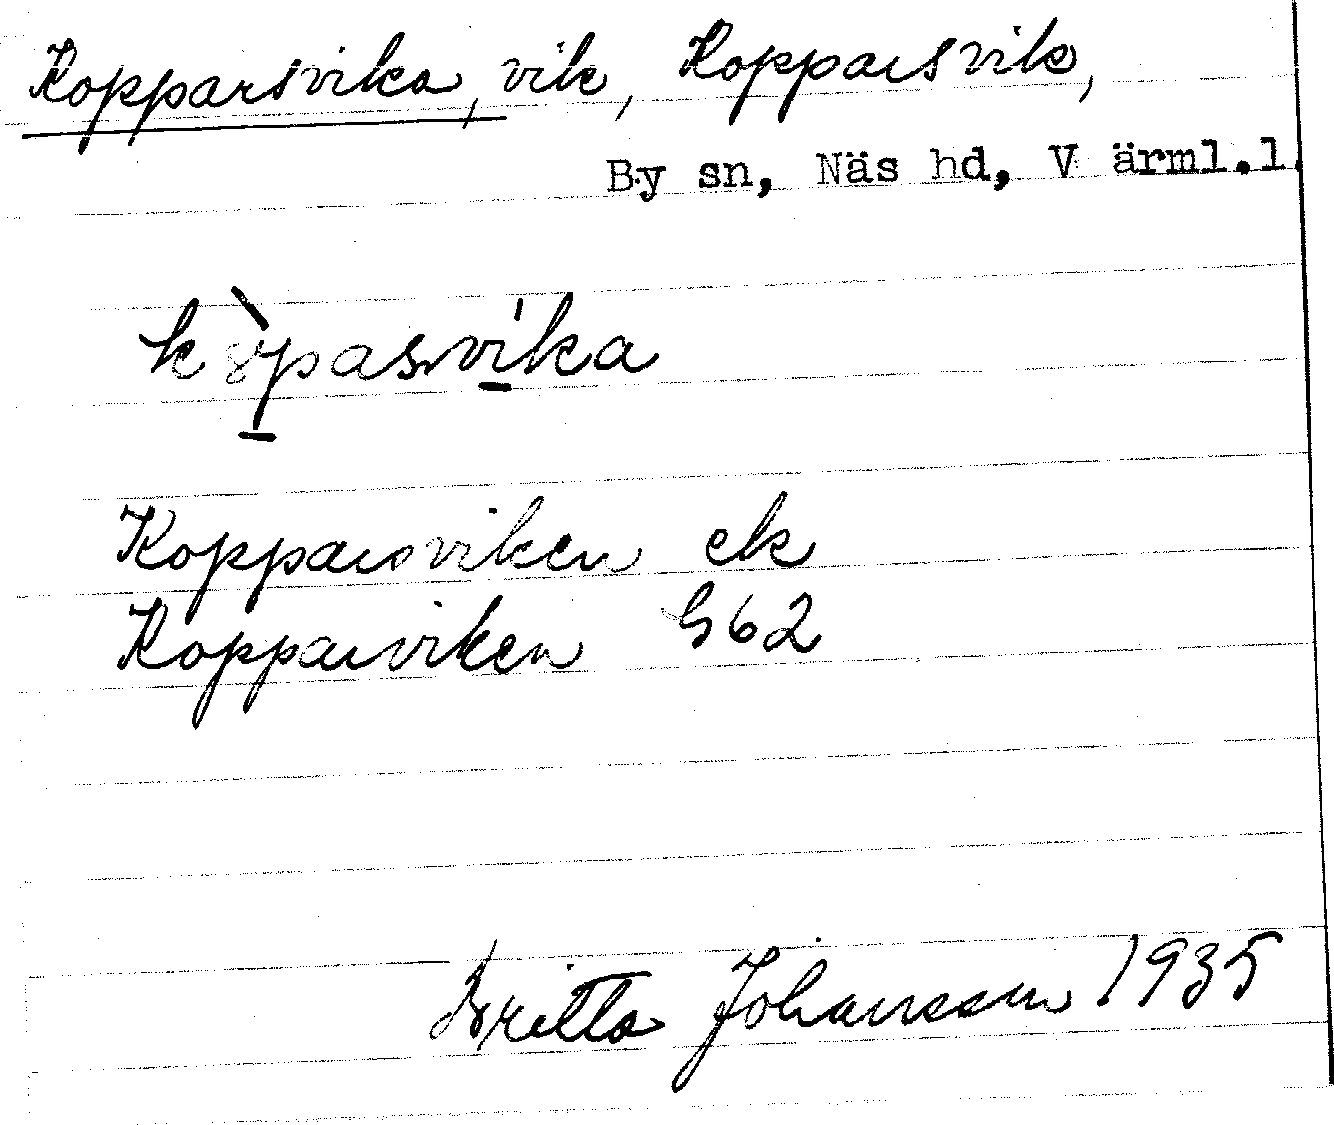 Kopparsvika, vik, Kopparsvik,
By sn, Näs hd, Värml.l.
kòpasvika
Kopparsviken ek
Kopparviken G62
Britta Johansson 1935